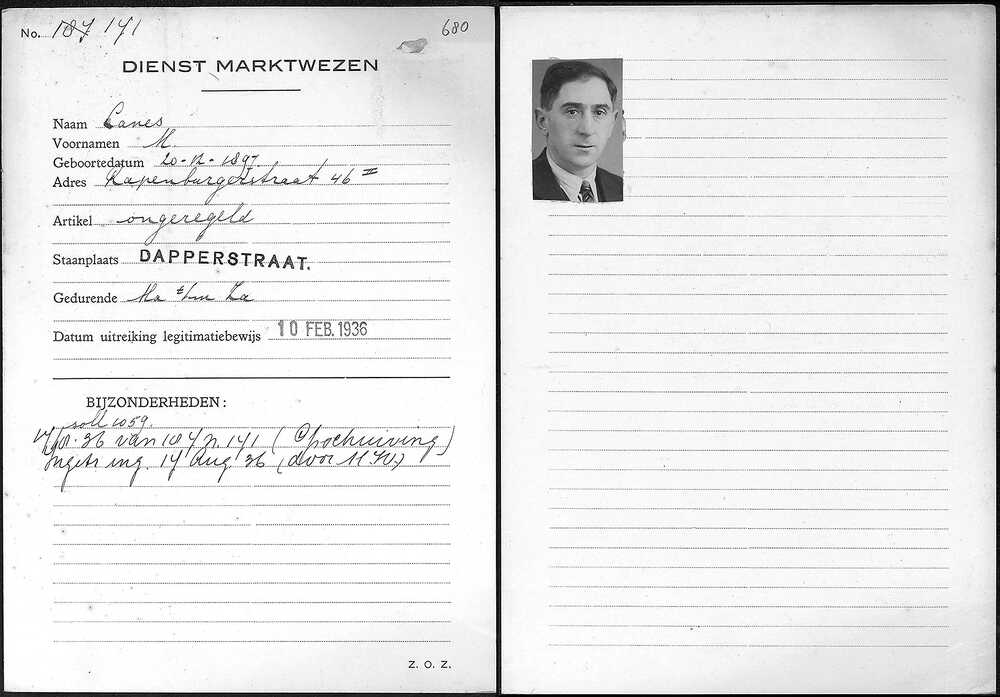 No. 187 171
680
DIENST MARKTWEZEN
Naam Canes
Voornamen M.
Geboortedatum 20-12-1897.
Adres Rapenburgerstraat 46 II
Artikel ongeregeld
Staanplaats DAPPERSTRAAT.
Gedurende Ma t/m Za
Datum uitreiking legitimatiebewijs 10 FEB. 1936
BIJZONDERHEDEN:
soll 1059.
36 van 187 n. 171 (
Ingetr. ing. 17 Aug. 36 (door
Z. O. Z.